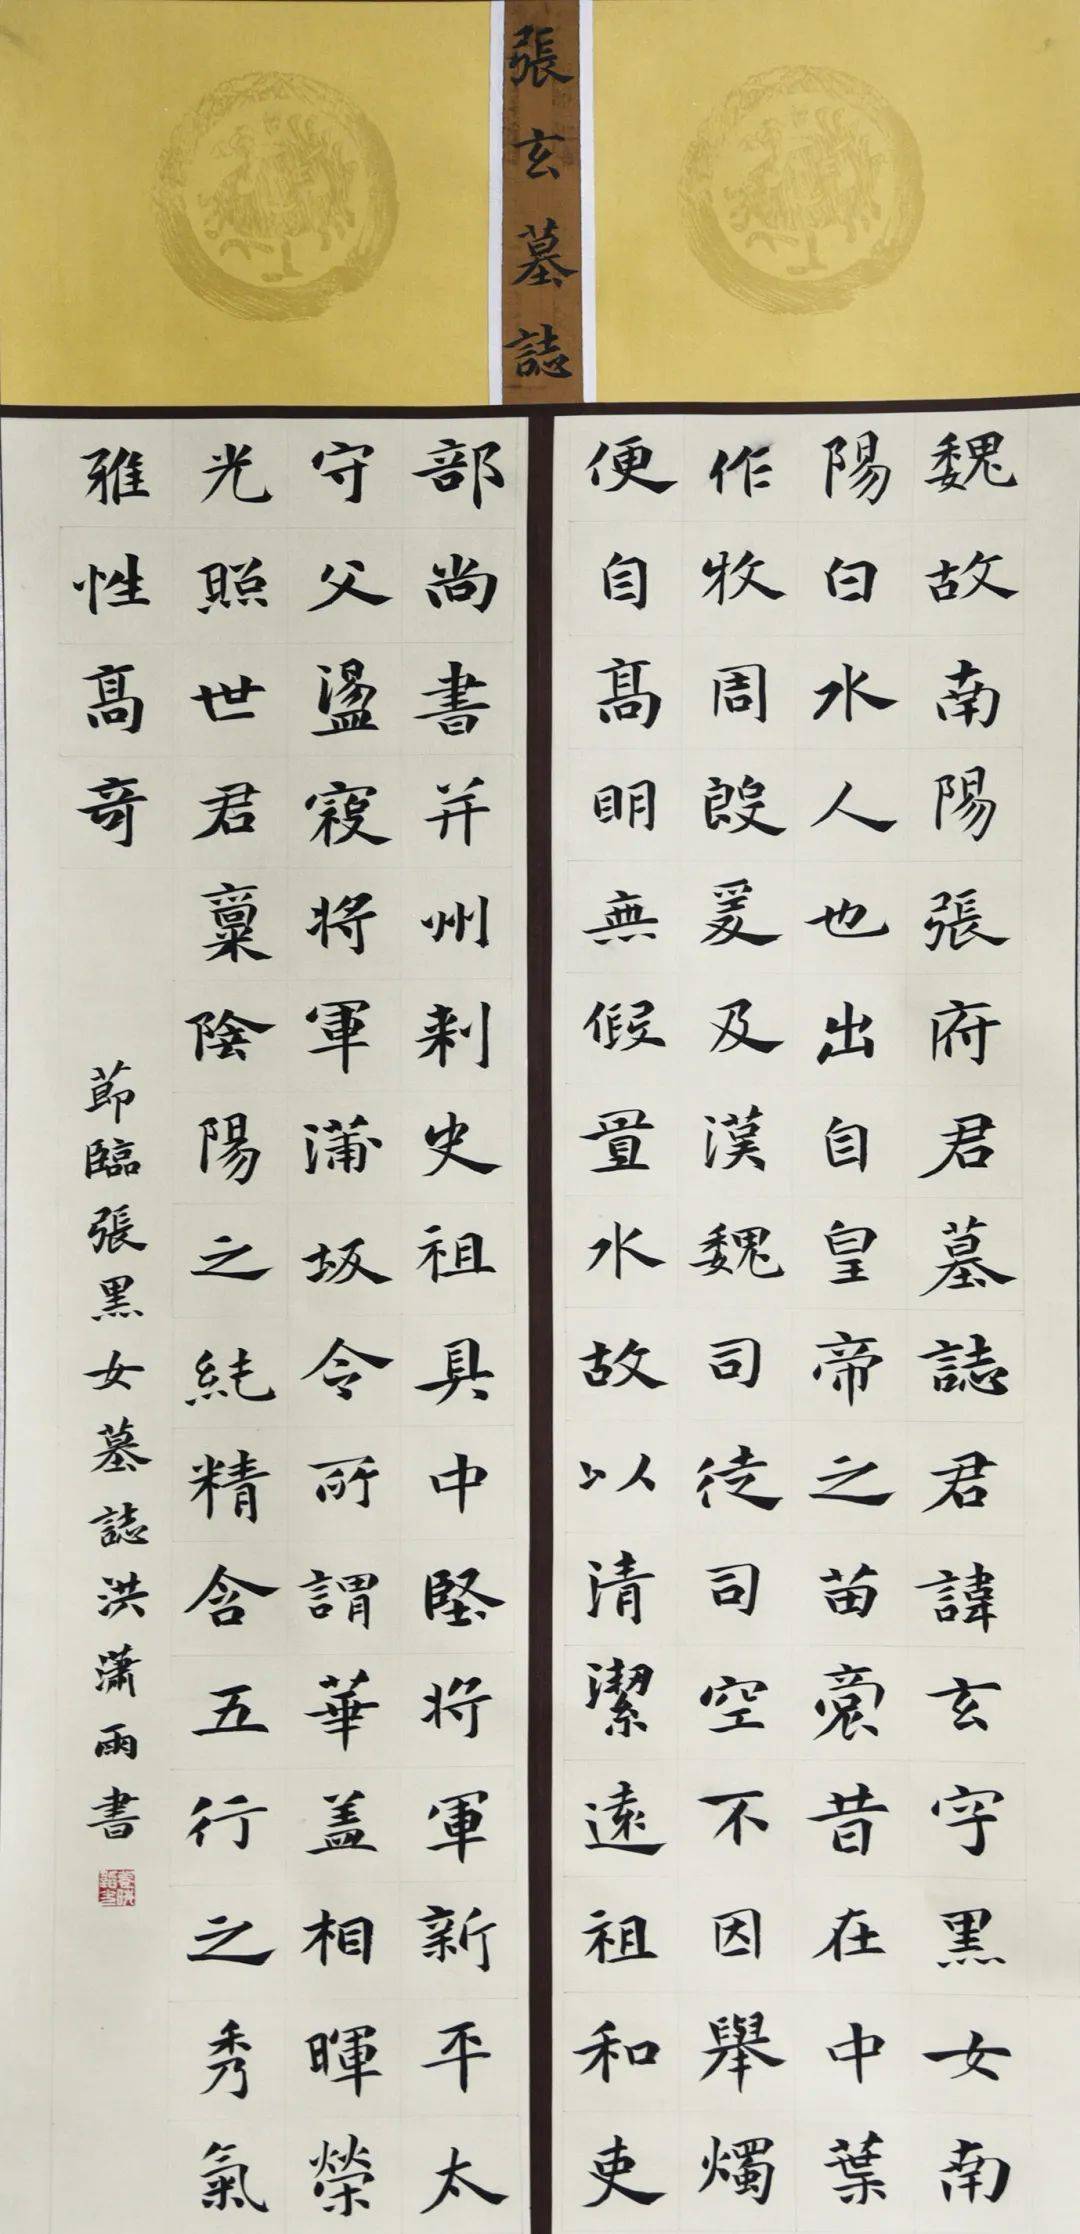 張玄墓誌
魏故南陽張府君墓誌君諱玄字黑女南
陽白水人也出自皇帝之苗裔昔在中葉
作牧周殷爰及漢魏司徒司空不因舉燭
便自髙明無假置水故以清潔遠祖和吏
部尚書并州刺史祖具中堅將軍新平太
守父盪寇將軍蒲坂令所謂華盖相暉榮
光照世君稟陰陽之純精含五行之秀氣
雅性髙奇
莭臨張黑女墓誌洪潇雨書